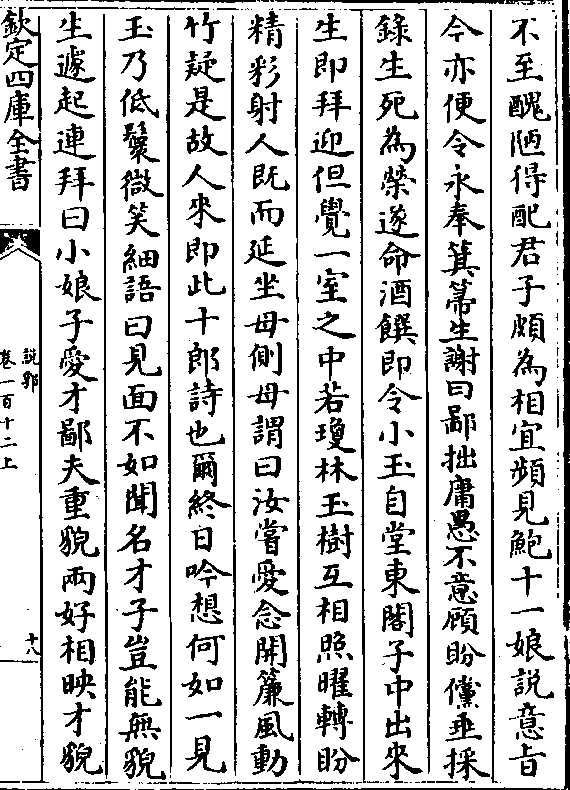 不至醜陋得配君子頗為相宜頻見鮑十一娘說意旨
今亦便令永奉箕箒生謝曰鄙拙庸愚不意顧盼儻垂採
錄生死為榮遂命酒饌即令小玉自堂東閣子中出來
生即拜迎但覺一室之中若瓊林玉樹互相照曜轉盼
精彩射人既而延坐母側母謂曰汝嘗愛念開簾風動
竹疑是故人來即此十郎詩也爾終日吟想何如一見
玉乃低鬟微笑細語曰見面不如聞名才子豈能無貌
生遽起連拜曰小娘子愛才鄙夫重貌兩好相映才貌
欽定四庫全書
說郛
卷一百十二上
十八